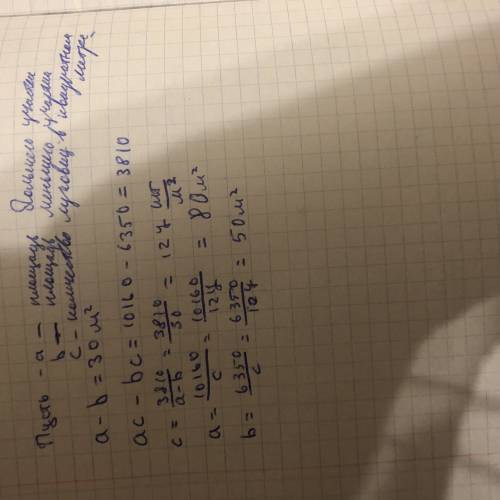 Пусть - a — площадь большего участка
b — площадь меньшего участка
c - количество луковиц в квадратном метре.
a - b = 30 м²
ac - bc = 10160 - 6350 = 3810
c = 3810/(a-b) = 3810/30 = 127 шт/м²
a = 10160/c = 10160/127 = 80 м²
b = 6350/c = 6350/127 = 50 м²